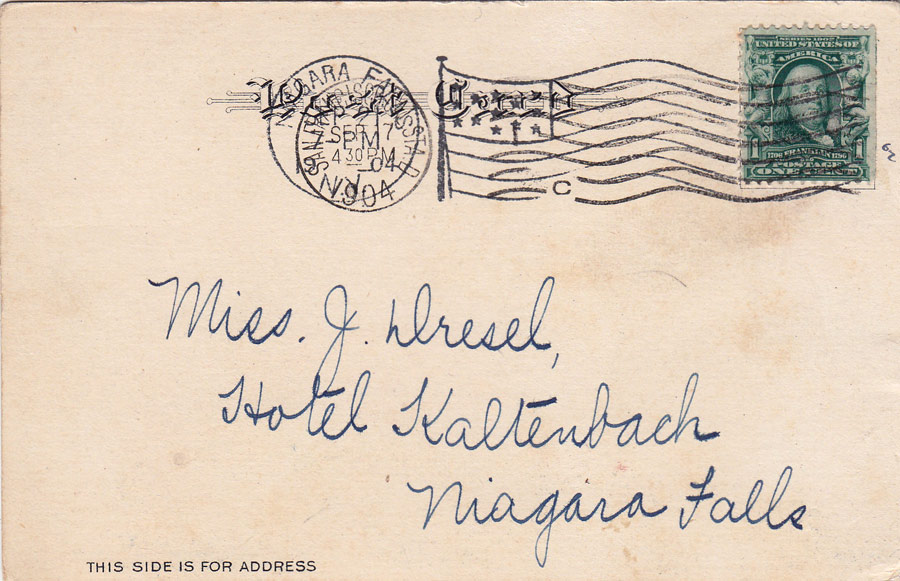 Post Card
NIAGARA FALLS
SEP 7
4 30 PM
1904
C
SERIES 1902
UNITED STATES OF
AMERICA
1706 FRANKLIN 1790
POSTAGE
1 ONE 1
Miss. J. Dresel,
Hotel Kaltenbach
Niagara Falls
THIS SIDE IS FOR ADDRESS